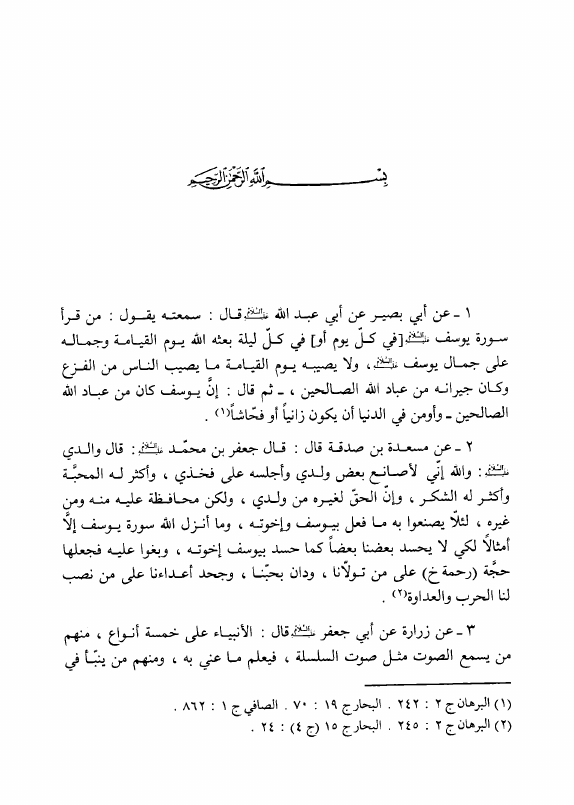 بِسْمِ اللَّهِ الرَّحْمَنِ الرَّحِيمِ
١ ـ عن أبي بصير عن أبي عبد الله عليه السلام قال : سمعته يقول : من قرأ
سورة يوسف عليه السلام [في كلّ يوم أو] في كلّ ليلة بعثه الله يوم القيامة وجماله
على جمال يوسف عليه السلام ، ولا يصيبه يوم القيامة ما يصيب الناس من الفزع
وكان جيرانه من عباد الله الصالحين ، ـ ثم قال : إنَّ يوسف كان من عباد الله
الصالحين ـ وأومن في الدنيا أن يكون زانياً أو فحّاشاً(١) .
٢ ـ عن مسعدة بن صدقة قال : قال جعفر بن محمّد عليه السلام : قال والدي
عليه السلام : والله إنّي لأصانع بعض ولدي وأجلسه على فخذي ، وأكثر له المحبَّة
وأكثر له الشكر ، وإنّ الحقّ لغيره من ولدي ، ولكن محافظة عليه منه ومن
غيره ، لئلّا يصنعوا به ما فعل بيوسف وإخوته ، وما أنزل الله سورة يوسف إلَّا
أمثالًا لكي لا يحسد بعضنا بعضاً كما حسد بيوسف إخوته ، وبغوا عليه فجعلها
حجَّة (رحمة خ) على من تولّانا ، ودان بحبّنا ، وجحد أعداءنا على من نصب
لنا الحرب والعداوة(٢) .
٣ ـ عن زرارة عن أبي جعفر عليه السلام قال : الأنبياء على خمسة أنواع ، منهم
من يسمع الصوت مثل صوت السلسلة ، فيعلم ما عني به ، ومنهم من ينبّأ في
(١) البرهان ج ٢ : ٢٤٢ . البحار ج ١٩ : ٧٠ . الصافي ج ١ : ٨٦٢ .
(٢) البرهان ج ٢ : ٢٤٥ . البحار ج ١٥ (ج ٤) : ٢٤ .